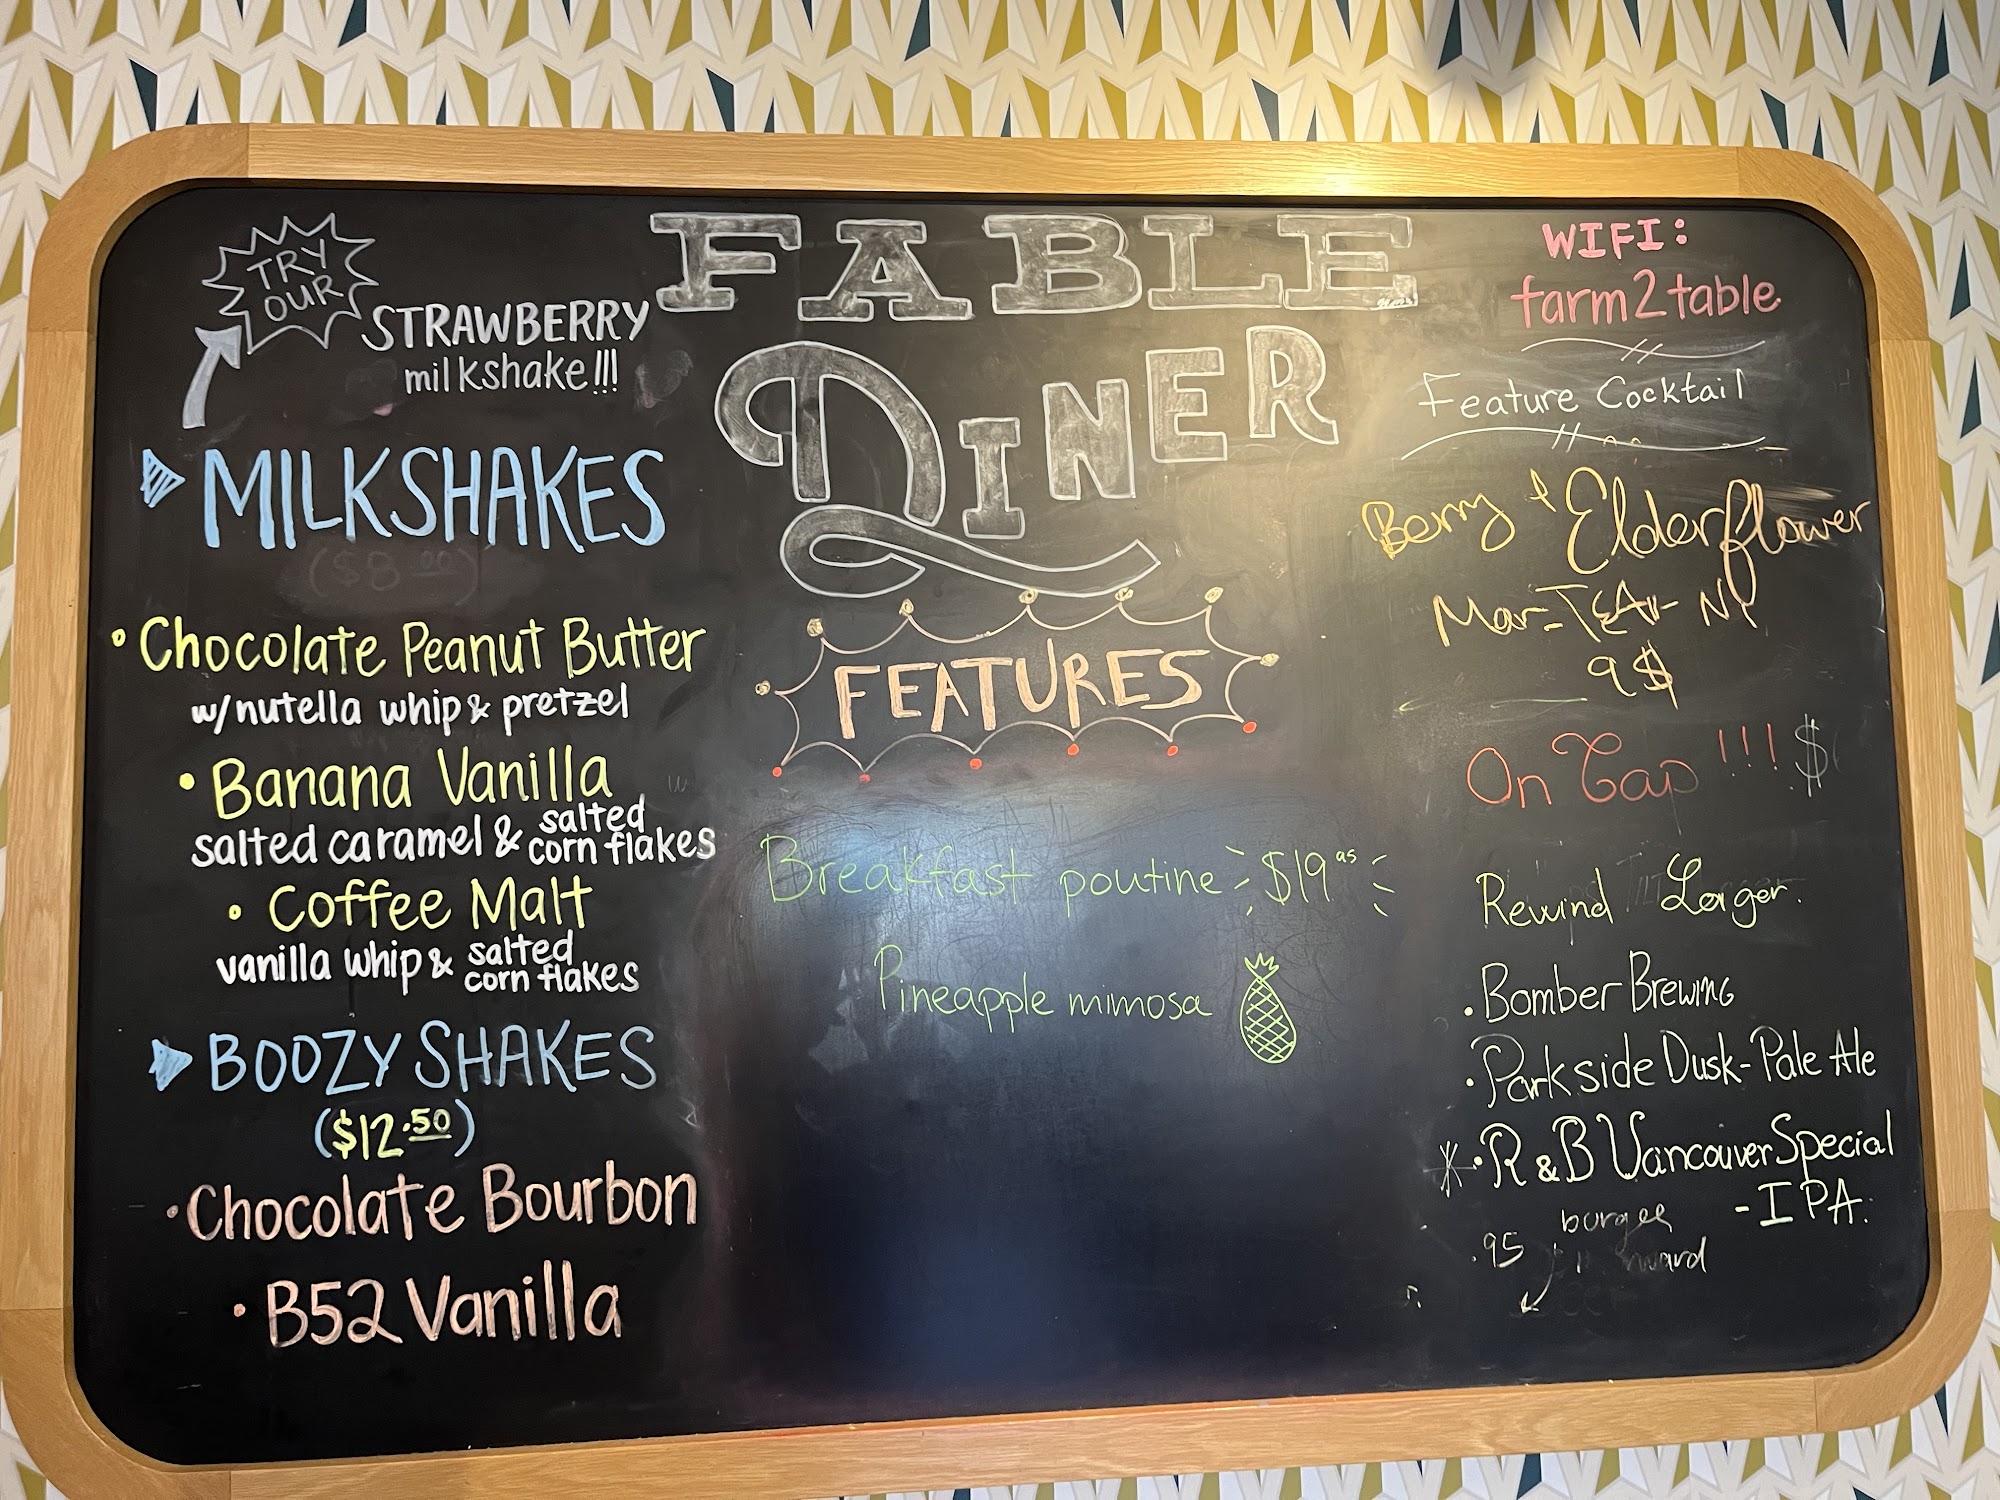 TRY
OUR
STRAWBERRY
milkshake!!!
MILKSHAKES
($8.00)
• Chocolate Peanut Butter
w/nutella whip & pretzel
• Banana Vanilla
salted caramel & salted
corn flakes
• Coffee Malt
vanilla whip & salted
corn flakes
BOOZY SHAKES
($12.50)
• Chocolate Bourbon
• B52 Vanilla
FABLE
DINER
FEATURES
Breakfast poutine $19
Pineapple mimosa
WIFI:
farm2table
Feature Cocktail
Berry + Elderflower
Mar-TEA-NI
9$
On Tap !!! $
Rewind Lager.
• Bomber Brewing
• Parkside Dusk-Pale Ale
• R&B Vancouver Special
- IPA.
.95